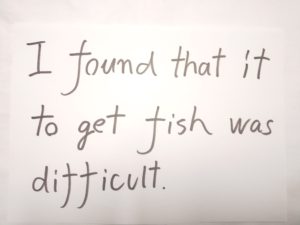 I found that it
to get fish was
difficult.